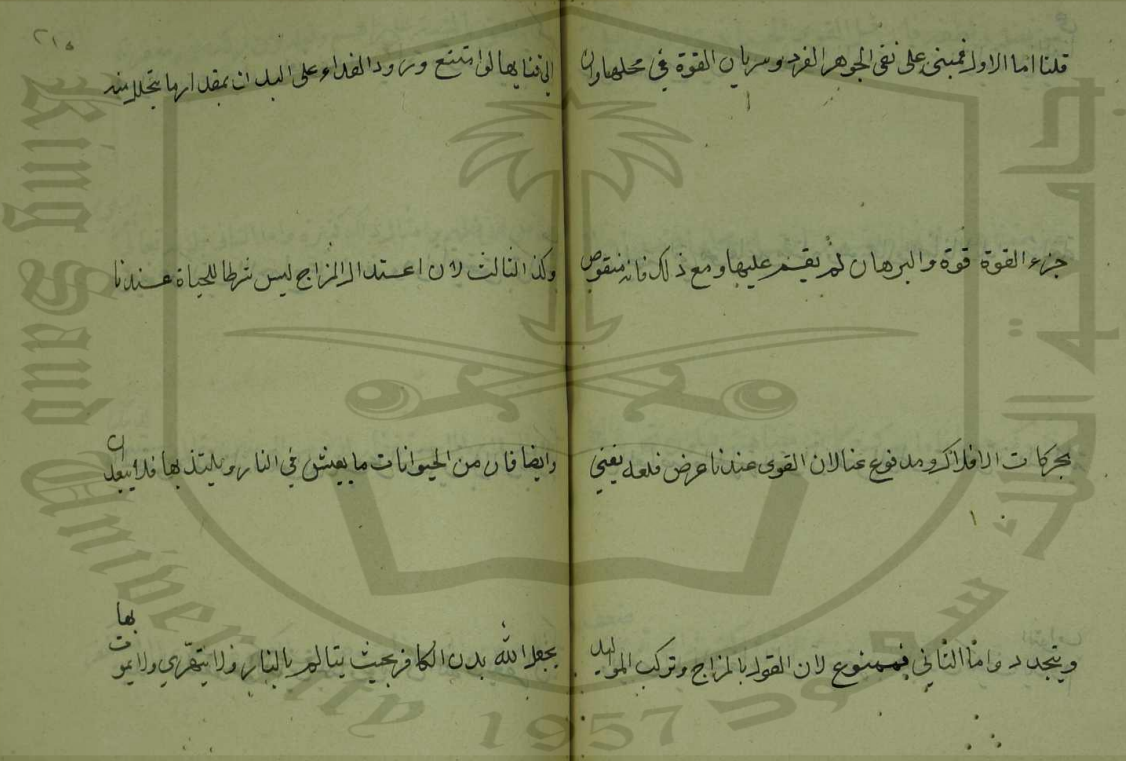 ٢١٥
قلنا اما الاول فمبنى على نفى الجوهر الفرد وسريان القوة في محلها وان
جزء القوة قوة والبرهان لم يقم عليها ومع ذلك فانه منقوض
بحركات الافلاك ومدفوع عنا لان القوى عندنا عرض فلعله يفنى
ويتجدد واما الثاني فممنوع لان القول بالمزاج وتركب المواليد
الى فنايها لو امتنع ورود الغذاء على البدن بمقدار ما يتحلل منه
وكذا الثالث لان اعتدال المزاج ليس شرطا للحياة عندنا
وايضا فان من الحيوانات ما يعيش في النار ويلتذ بها فلا يبعد ان
يجعل الله بدن الكافر بحيث يتالم بالنار ولا يتهرى ولا يموت بها
King Saud University
1957
جامعة الملك سعود